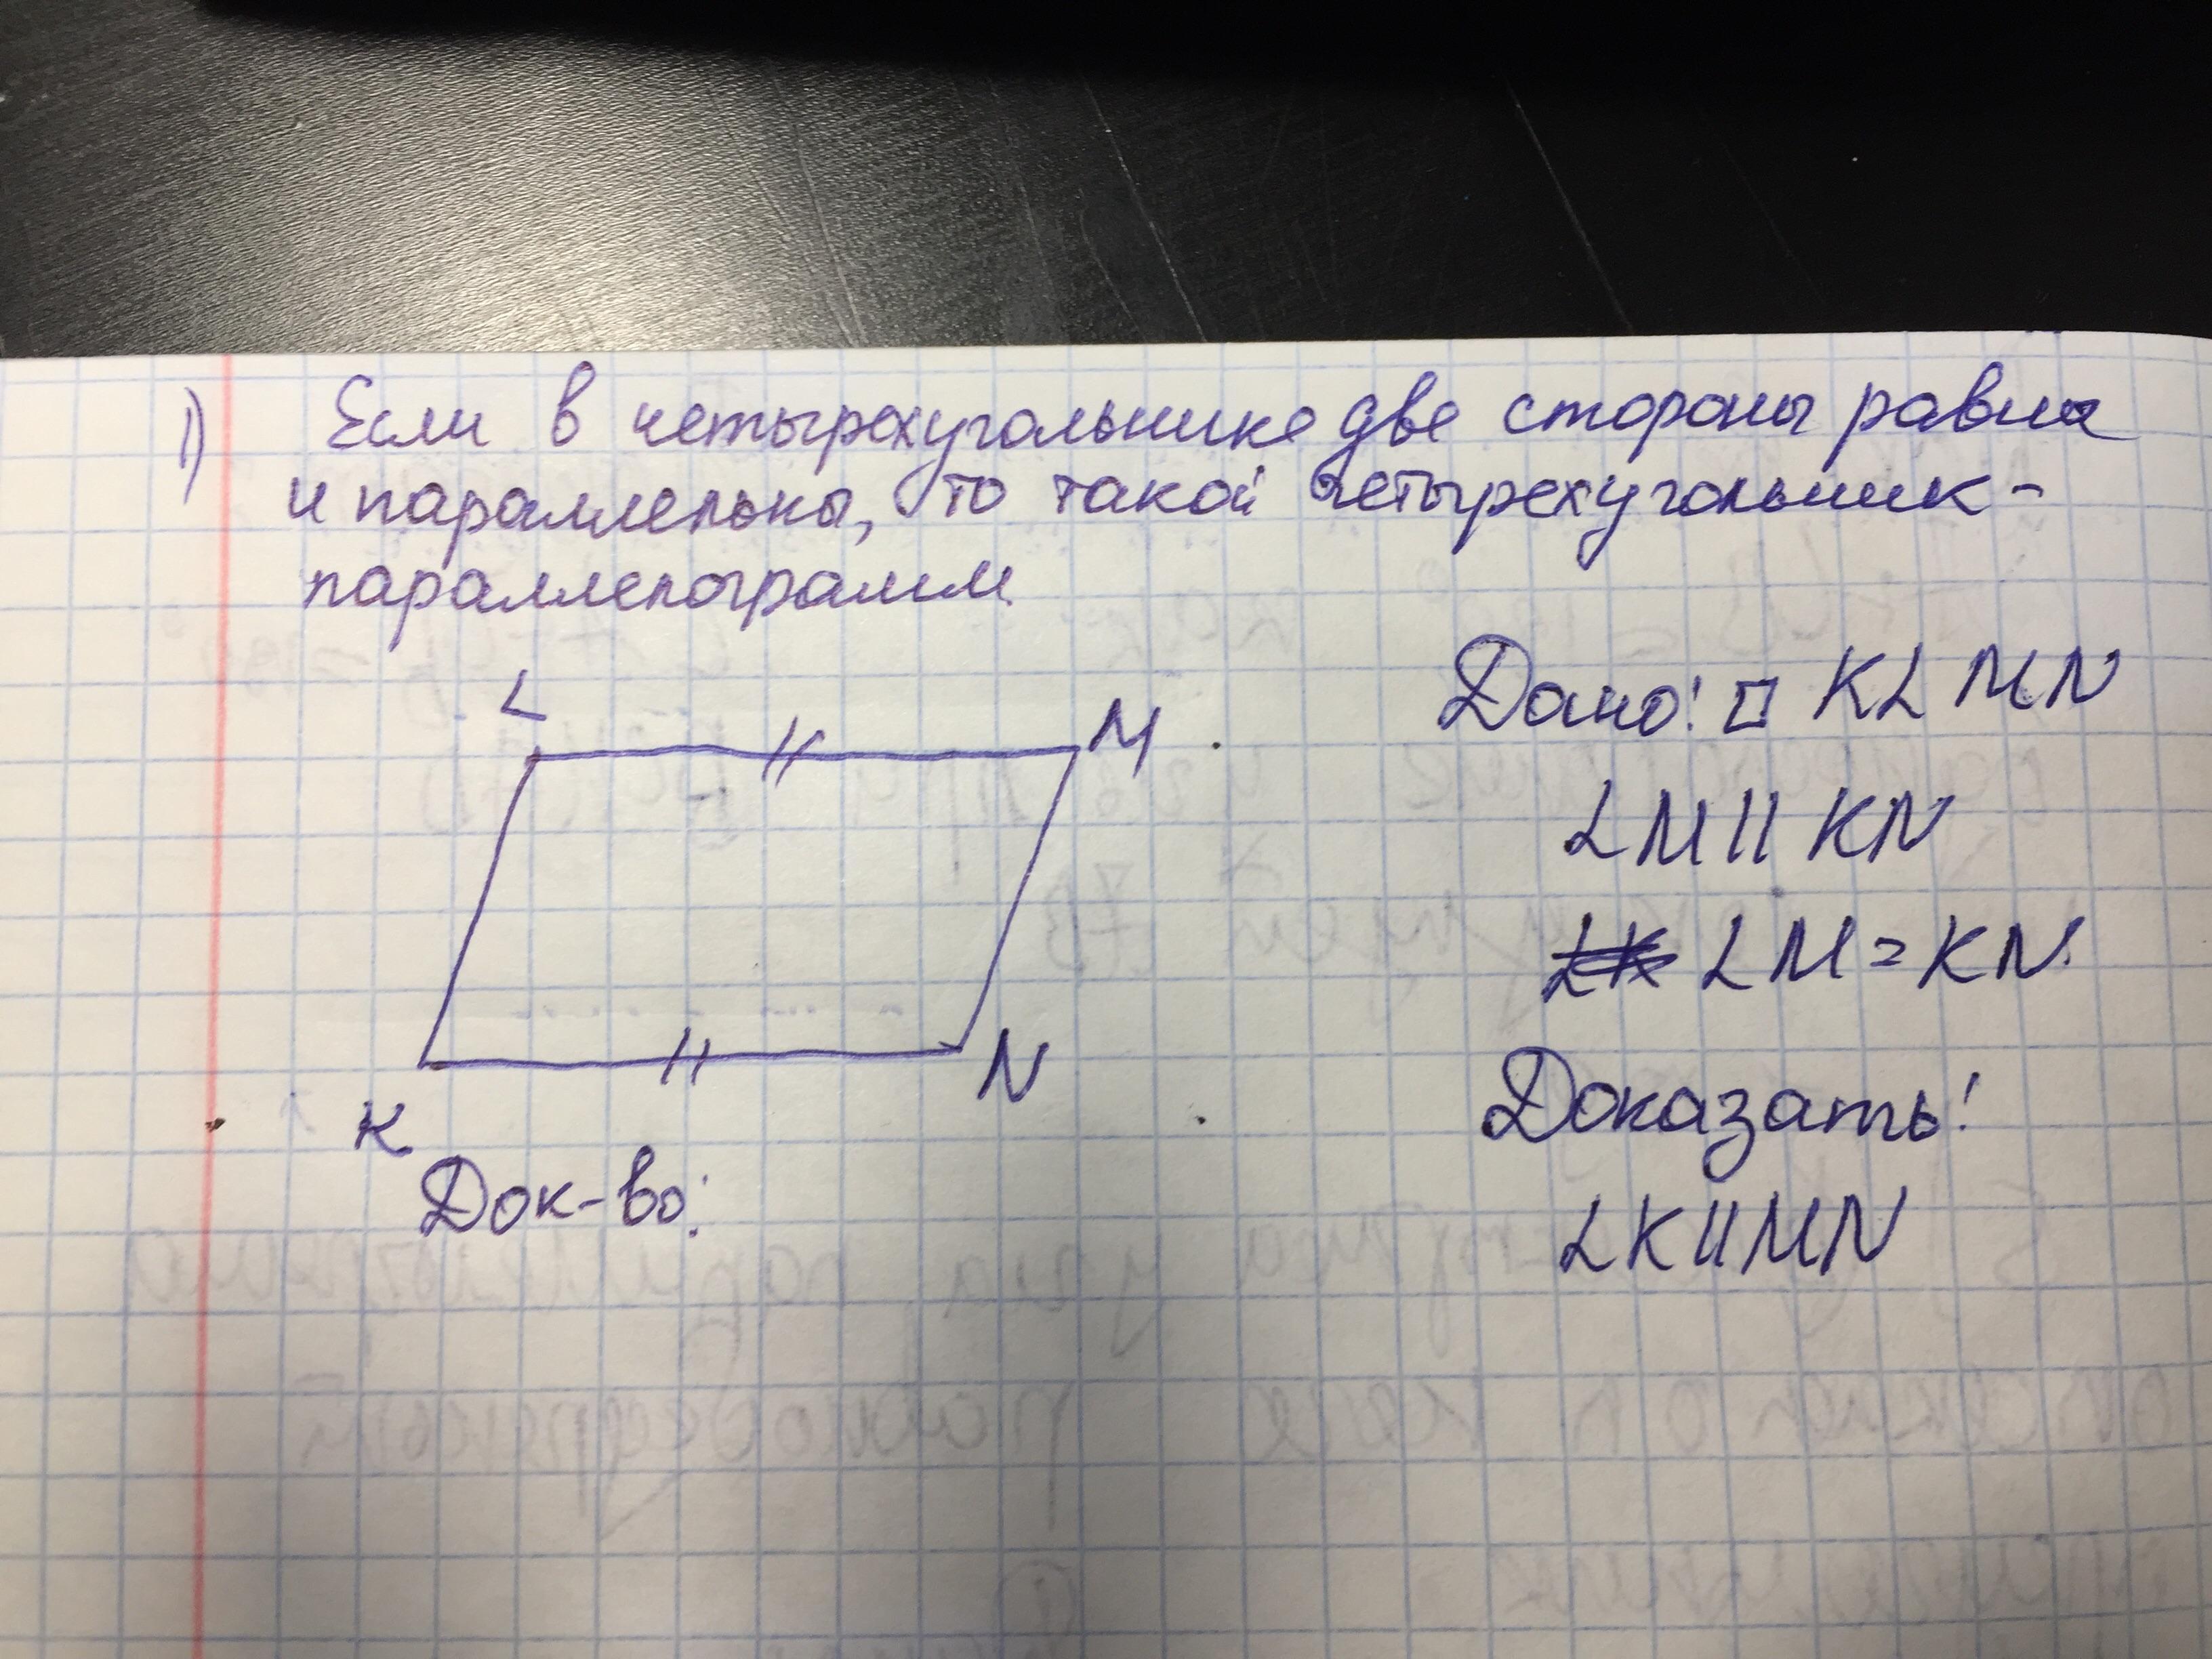 1) Если в четырехугольнике две стороны равны
и параллельны, то такой четырехугольник -
параллелограмм
L
M
Дано: □ KLMN
LM || KN
LM = KN
K
N
Доказать:
LK || MN
Док-во: